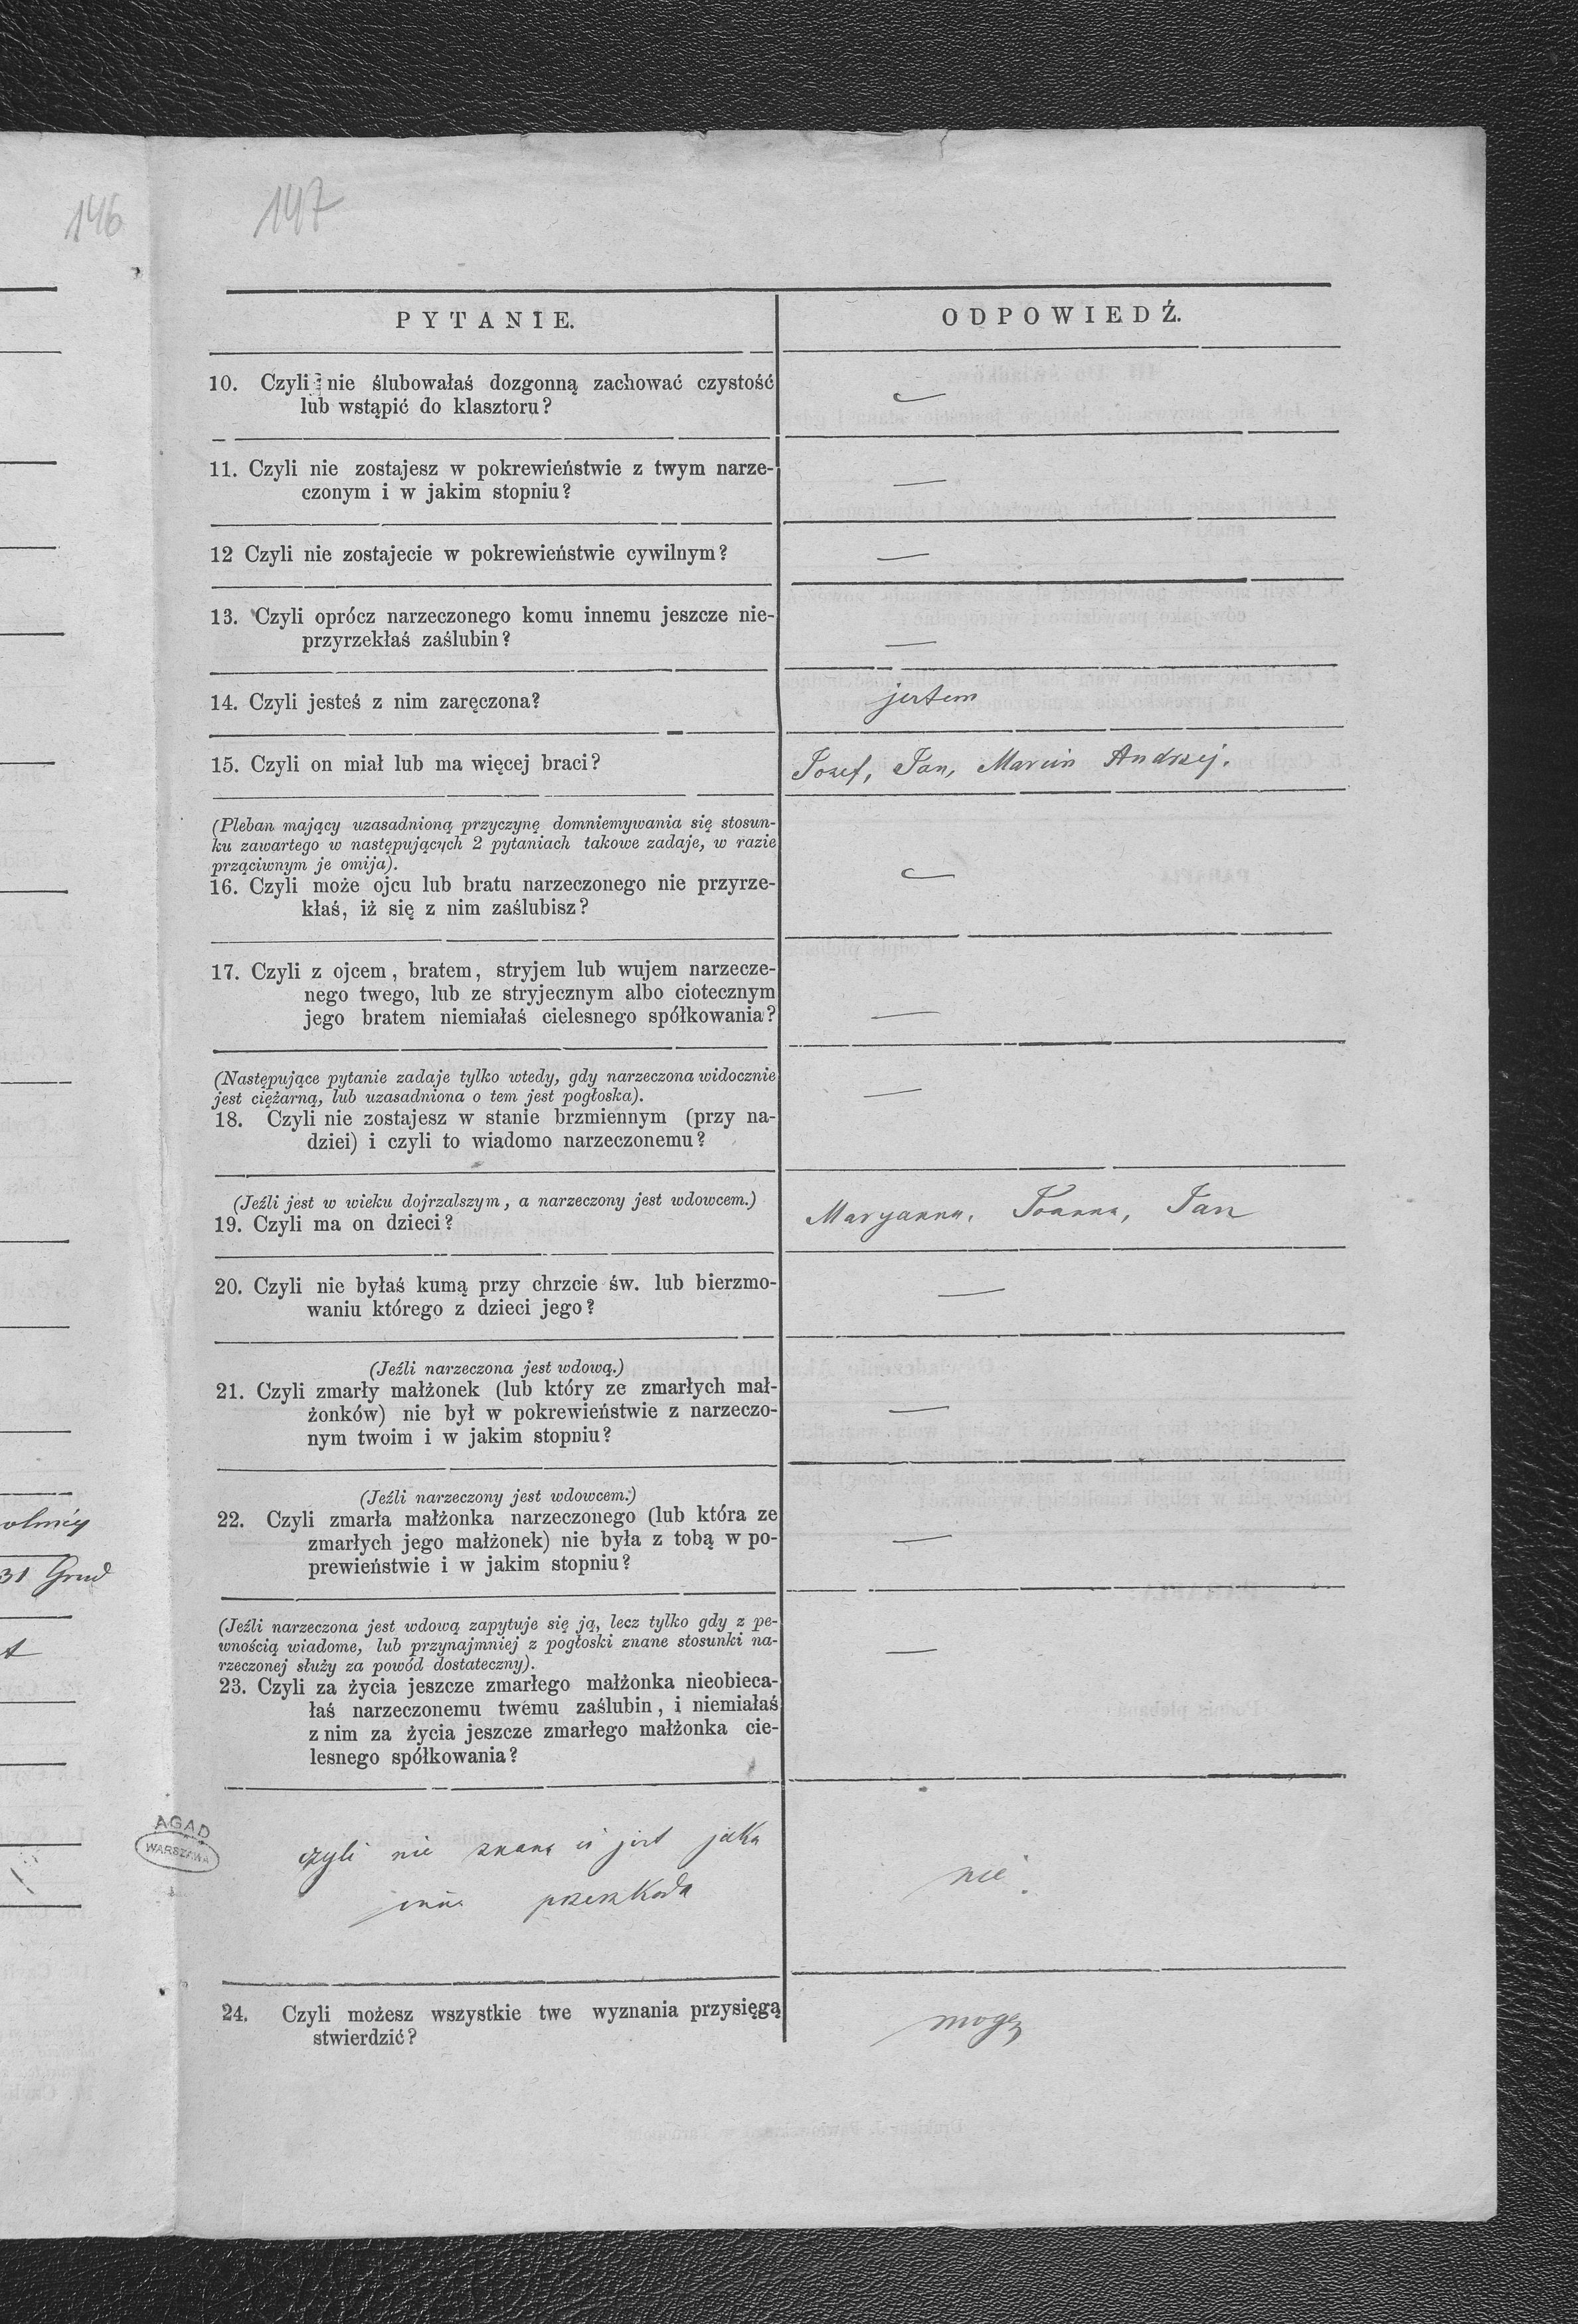 146
147
PYTANIE.
ODPOWIEDŹ.
10. Czyli nie ślubowałaś dozgonną zachować czystość
lub wstąpić do klasztoru?
—
11. Czyli nie zostajesz w pokrewieństwie z twym narze-
czonym i w jakim stopniu?
—
12 Czyli nie zostajecie w pokrewieństwie cywilnym?
—
13. Czyli oprócz narzeczonego komu innemu jeszcze nie-
przyrzekłaś zaślubin?
—
14. Czyli jesteś z nim zaręczona?
jestem
15. Czyli on miał lub ma więcej braci?
Jozef, Jan, Marcin Andrzej.
(Pleban mający uzasadnioną przyczynę domniemywania się stosun-
ku zawartego w następujących 2 pytaniach takowe zadaje, w razie
prząciwnym je omija).
16. Czyli może ojcu lub bratu narzeczonego nie przyrze-
kłaś, iż się z nim zaślubisz?
—
17. Czyli z ojcem, bratem, stryjem lub wujem narzecze-
nego twego, lub ze stryjecznym albo ciotecznym
jego bratem niemiałaś cielesnego spółkowania?
—
(Następujące pytanie zadaje tylko wtedy, gdy narzeczona widocznie
jest ciężarną, lub uzasadniona o tem jest pogłoska).
18. Czyli nie zostajesz w stanie brzmiennym (przy na-
dziei) i czyli to wiadomo narzeczonemu?
—
(Jeźli jest w wieku dojrzalszym, a narzeczony jest wdowcem.)
19. Czyli ma on dzieci?
Maryanna, Joanna, Jan
20. Czyli nie byłaś kumą przy chrzcie św. lub bierzmo-
waniu którego z dzieci jego?
—
(Jeźli narzeczona jest wdową.)
21. Czyli zmarły małżonek (lub który ze zmarłych mał-
żonków) nie był w pokrewieństwie z narzeczo-
nym twoim i w jakim stopniu?
—
(Jeźli narzeczony jest wdowcem.)
22. Czyli zmarła małżonka narzeczonego (lub która ze
zmarłych jego małżonek) nie była z tobą w po-
prewieństwie i w jakim stopniu?
—
31 Grud
(Jeźli narzeczona jest wdową zapytuje się ją, lecz tylko gdy z pe-
wnością wiadome, lub przynajmniej z pogłoski znane stosunki na-
rzeczonej służy za powód dostateczny).
23. Czyli za życia jeszcze zmarłego małżonka nieobieca-
łaś narzeczonemu twemu zaślubin, i niemiałaś
z nim za życia jeszcze zmarłego małżonka cie-
lesnego spółkowania?
—
AGAD
WARSZAWA
czyli nie znana ci jest jaka
inna przeszkoda
nie.
24. Czyli możesz wszystkie twe wyznania przysięgą
stwierdzić?
mogę